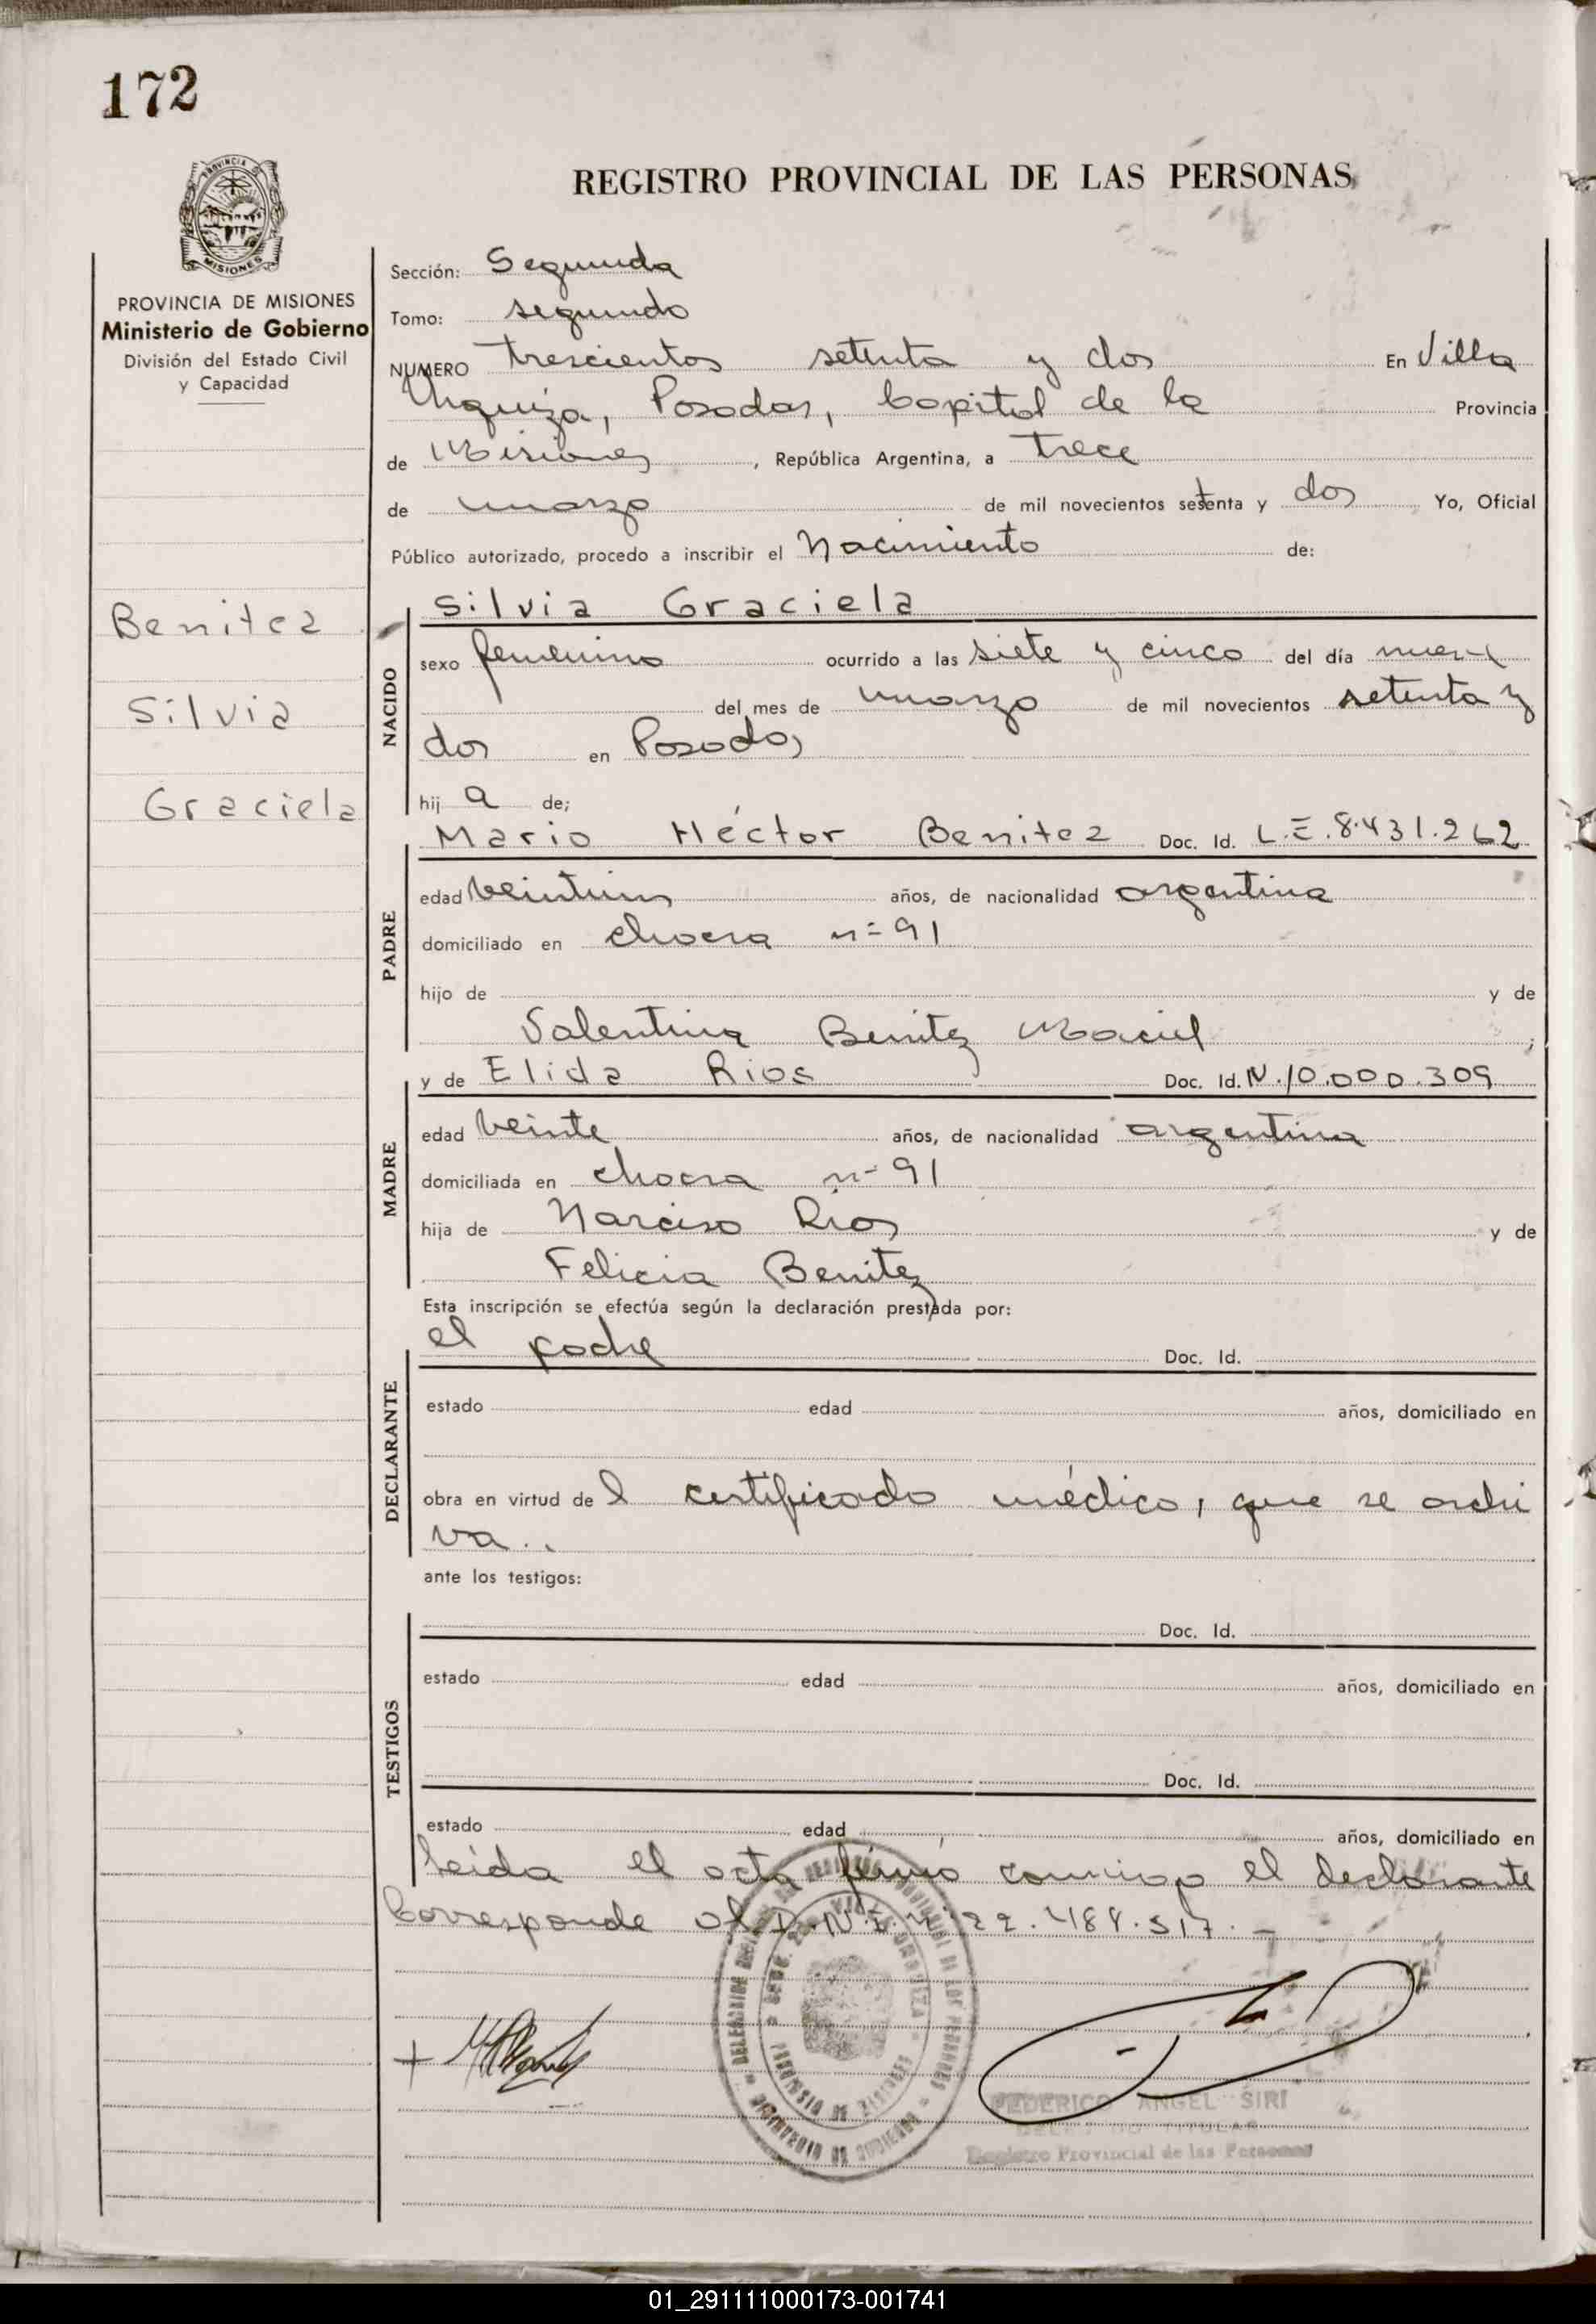 172
REGISTRO PROVINCIAL DE LAS PERSONAS
PROVINCIA
MISIONES
PROVINCIA DE MISIONES
Ministerio de Gobierno
División del Estado Civil
y Capacidad
Benitez
Silvia
Graciela
Sección: Segunda
Tomo: segundo
NUMERO trescientos setenta y dos En Villa
Urquiza, Posadas, Capital de la Provincia
de Misiones, República Argentina, a trece
de marzo de mil novecientos setenta y dos Yo, Oficial
Público autorizado, procedo a inscribir el Nacimiento de:
Silvia Graciela
NACIDO
sexo femenino ocurrido a las siete y cinco del día nueve
del mes de marzo de mil novecientos setenta y
dos en Posadas
hij a de;
Mario Héctor Benitez Doc. Id. L.E.8.431.262
PADRE
edad veintiun años, de nacionalidad argentina
domiciliado en chacra nº 91
hijo de y de
Valentina Benitez Maciel ;
y de Elida Rios Doc. Id. N.10.000.309
MADRE
edad veinte años, de nacionalidad argentina
domiciliada en chacra nº 91
hija de Narciso Rios y de
Felicia Benitez
Esta inscripción se efectúa según la declaración prestada por:
el padre Doc. Id.
DECLARANTE
estado edad años, domiciliado en
obra en virtud de l certificado médico, que se archi
va..
ante los testigos:
TESTIGOS
Doc. Id.
estado edad años, domiciliado en
Doc. Id.
estado edad años, domiciliado en
Leida el acta firmó conmigo el declarante
Corresponde al D.N.I. Nº 22.484.517.-
FEDERICO ANGEL SIRI
TITULAR
Registro Provincial de las Personas
01_291111000173-001741